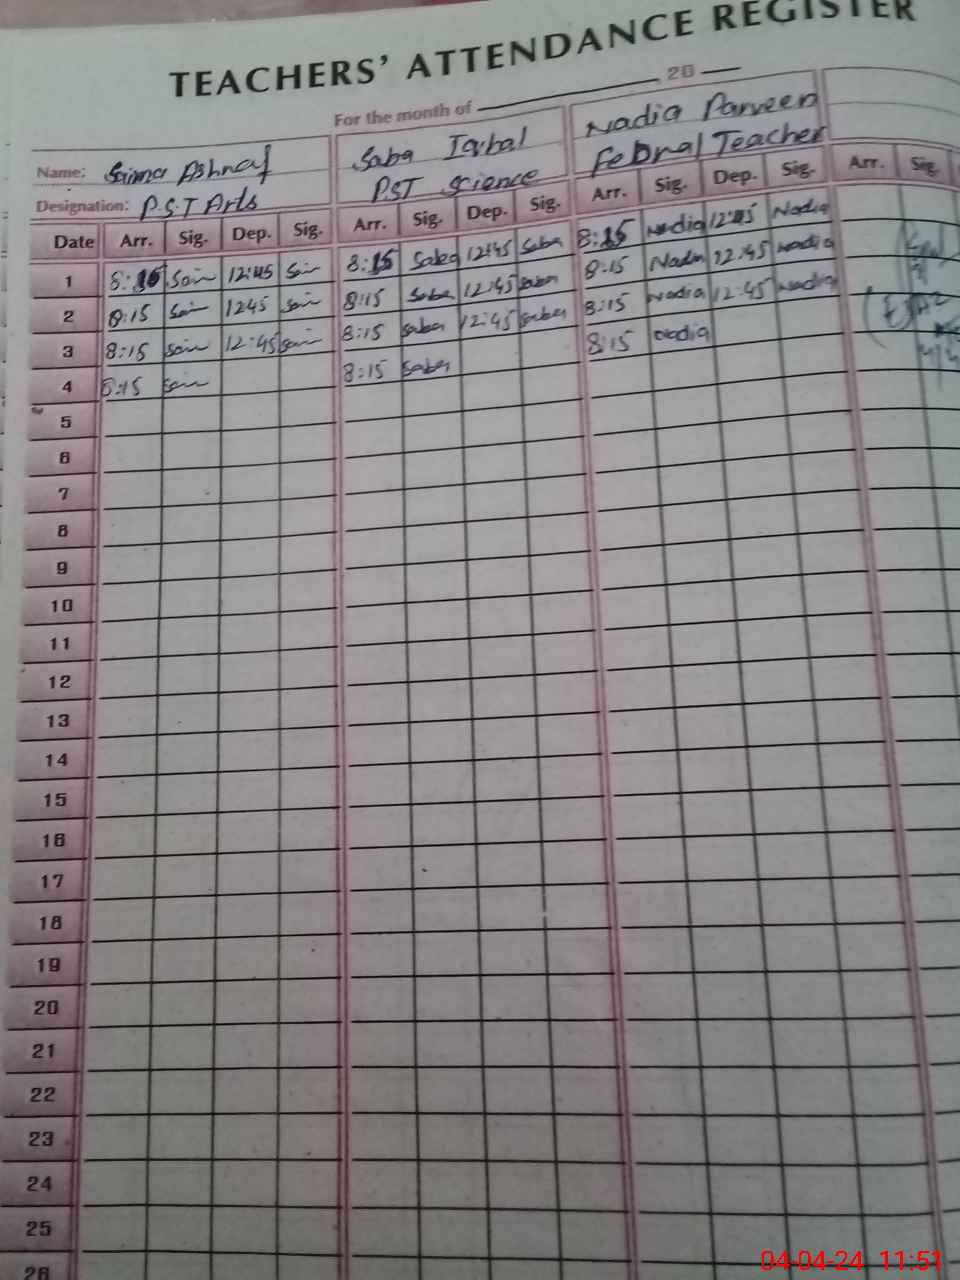 TEACHERS' ATTENDANCE REGISTER
For the month of 20
Name: Saima Ashraf Saba Iqbal Nadia Parveen
Designation: P.S.T Arts PST Science Febral Teacher
Date Arr. Sig. Dep. Sig. Arr. Sig. Dep. Sig. Arr. Sig. Dep. Sig. Arr. Sig.
1 8:15 Sai 12:45 Sai 8:15 Saba 12:45 Saba 8:15 Nadia 12:45 Nadia
2 8:15 Sai 1245 Sai 8:15 Saba 12:45 Saba 8:15 Nadia 12:45 Nadia
3 8:15 Sai 12:45 Sai 8:15 Saba 12:45 Saba 8:15 Nadia 12:45 Nadia
4 8:15 Sai 8:15 Saba 8:15 Nadia
5
6
7
8
9
10
11
12
13
14
15
16
17
18
19
20
21
22
23
24
25
26
04-04-24 11:51